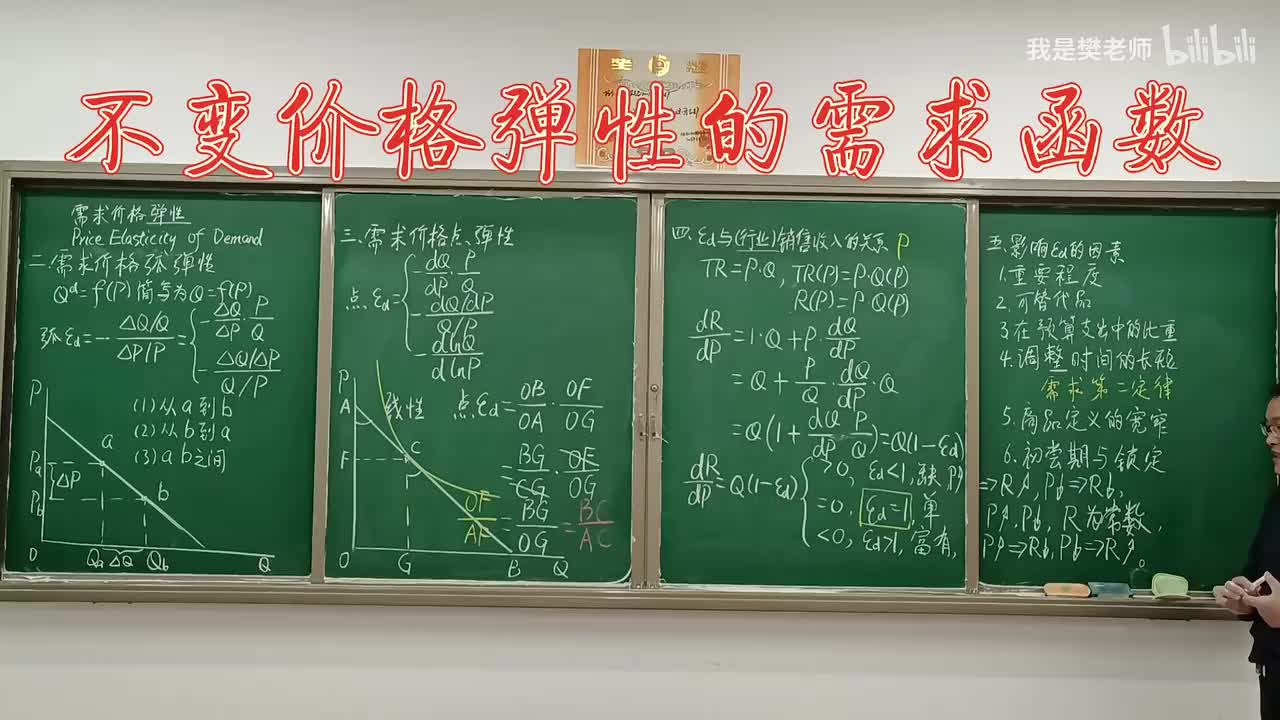 我是樊老师 bilibili
不变价格弹性的需求函数
需求价格弹性
Price Elasticity of Demand
二、需求价格弧弹性
Qᵈ=f(P) 简写为 Q=f(P)
弧 Ed = -(ΔQ/Q)/(ΔP/P) = { -ΔQ/ΔP · P/Q
-(ΔQ/ΔP)/(Q/P)
(1) 从a到b
(2) 从b到a
(3) a b之间
P
Pa
ΔP
Pb
a
b
O
Qa ΔQ Qb
Q
三、需求价格点弹性
点 Ed = { -dQ/dP · P/Q
-(dQ/dP)/(Q/P)
-dlnQ/dlnP
线性 点Ed = OB/OA · OF/OG
= BG/CG · OF/OG
OF/AF = BG/OG = BC/AC
P
A
F
C
O
G
B
Q
四、Ed与(行业)销售收入的关系 P
TR=P·Q, TR(P)=P·Q(P)
R(P)=P·Q(P)
dR/dP = 1·Q+P·dQ/dP
= Q + P/Q · dQ/dP · Q
= Q(1 + dQ/dP · P/Q) = Q(1-Ed)
dR/dP = Q(1-Ed) { >0, Ed<1, 缺, P↑ ⇒R↑, P↓⇒R↓,
=0, Ed=1, 单 P↑, P↓, R为常数,
<0, Ed>1, 富有, P↑⇒R↓, P↓⇒R↑。
五、影响Ed的因素
1.重要程度
2.可替代品
3.在预算支出中的比重
4.调整时间的长短
需求第二定律
5.商品定义的宽窄
6.初尝期与锁定